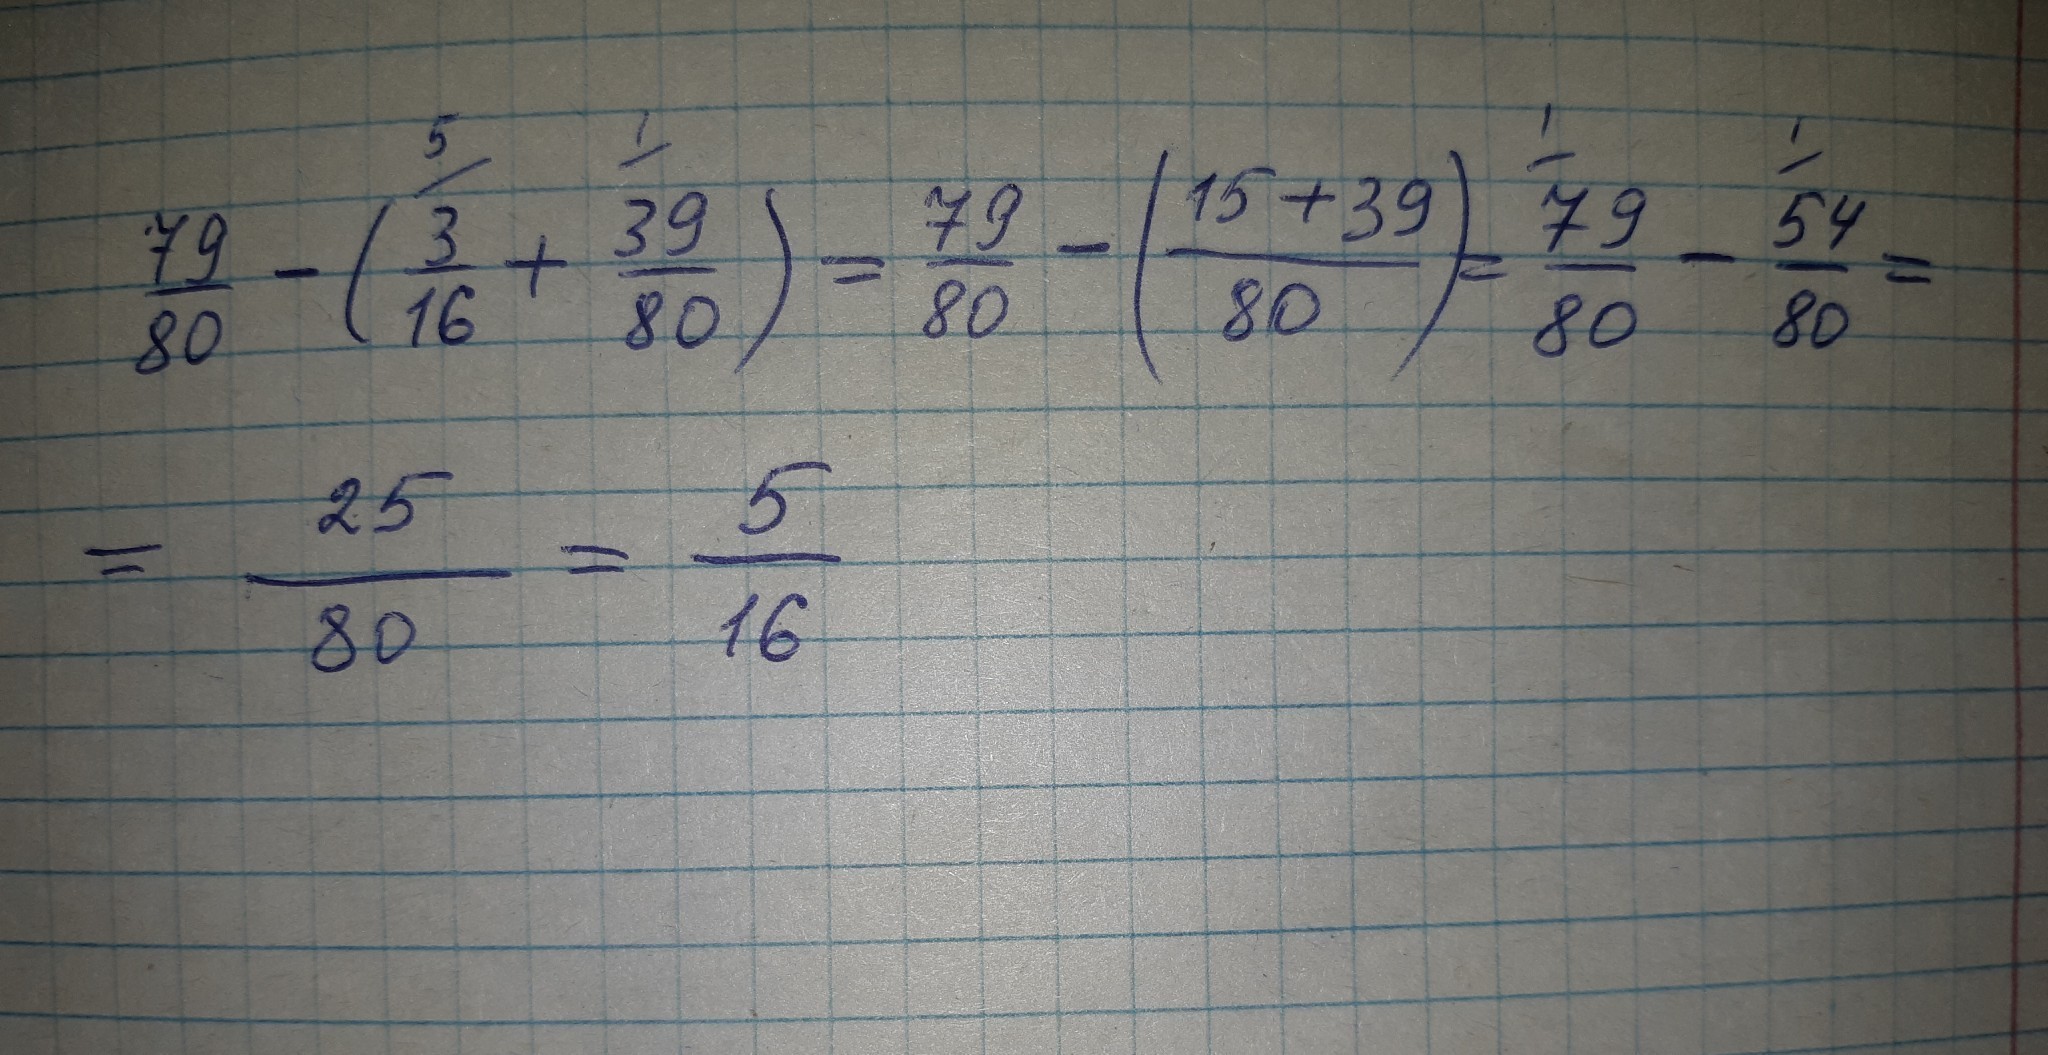 79/80 - (3/16 ⁵ + 39/80 ¹) = 79/80 - (15+39/80) = 79/80 ¹ - 54/80 ¹ =
= 25/80 = 5/16